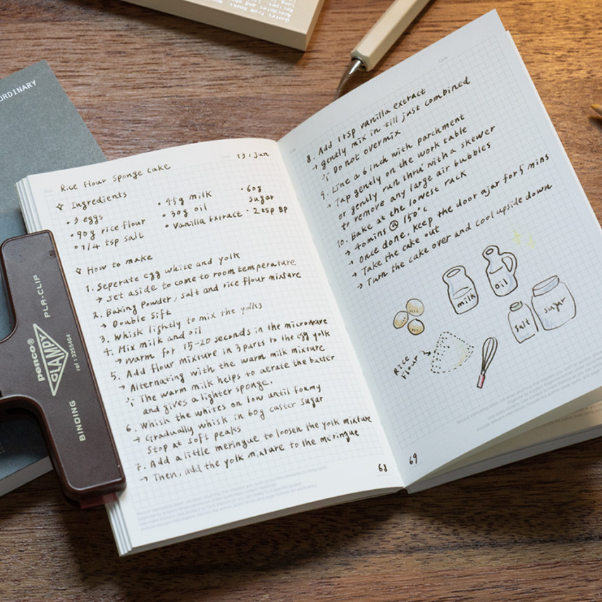 ORDINARY
13. Jun
Rice flour sponge cake
Ingredients
• 3 eggs
• 90g rice flour
• 1/4 tsp salt
• 45g milk
• 30g oil
• Vanilla Extract
• 60g sugar
• 2 tsp BP
How to make
1. Seperate egg whise and yolk
→ Set aside to come to room temperature
2. Baking Powder, salt and rice flour mixture
→ Double Sift
3. Whisk lightly to mix the yolks
4. Mix milk and oil
→ Warm for 15-20 seconds in the microwave
5. Add flour mixture in 3 parts to the egg yolk
→ Alternating with the warm milk mixture
The warm milk helps to aerate the batter
and gives a lighter sponge.
6. Whisk the whites on low until foamy
→ Gradually whisk in 60g caster sugar
Stop at soft peaks
7. Add a little meringue to loosen the yolk mixture
→ Then, add the yolk mixture to the meringue
68
8. Add 1 tsp vanilla extract
→ gently mix in till just combined
Do not overmix
9. Line a 6 inch with parchment
→ Tap gently on the work table
or gently run thru with a skewer
to remove any large air bubbles
10. Bake at the lowest rack
→ 40mins @ 150°c
→ Once done, keep the door ajar for 5 mins
→ Take the cake out
→ Turn the cake over and cool upside down
milk
oil
Salt
Sugar
Rice
flour
69
penco®
CLAMPY
PLA-CLIP
BINDING